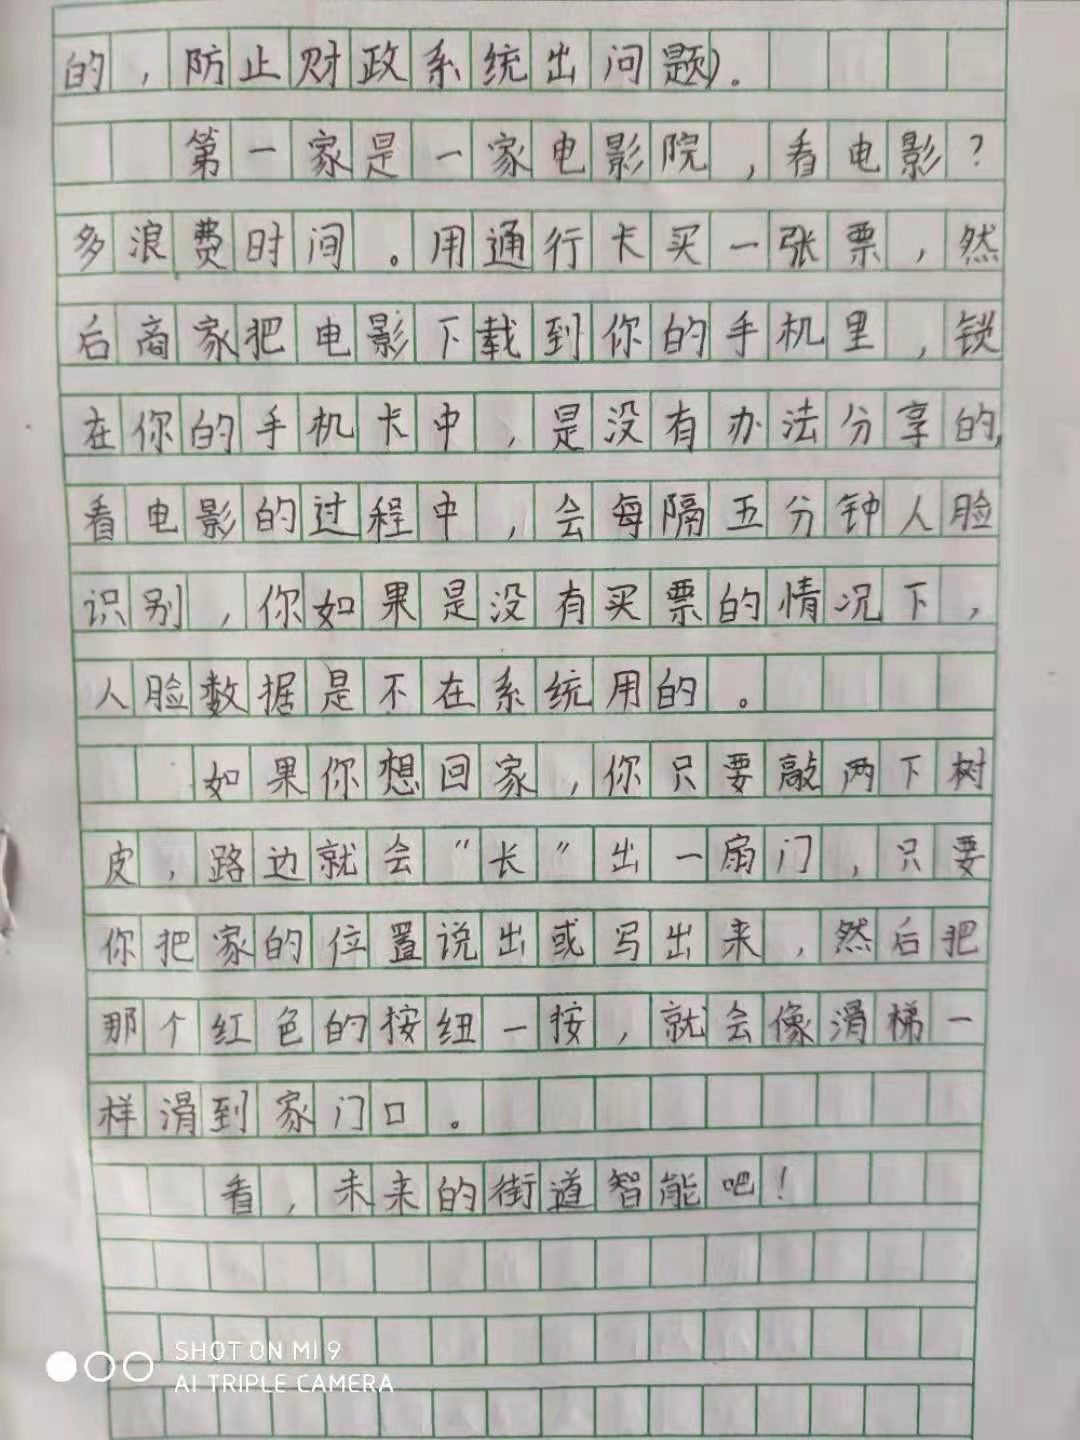 的，防止财政系统出问题)。
第一家是一家电影院，看电影？
多浪费时间。用通行卡买一张票，然
后商家把电影下载到你的手机里，锁
在你的手机卡中，是没有办法分享的，
看电影的过程中，会每隔五分钟人脸
识别，你如果是没有买票的情况下，
人脸数据是不在系统用的。
如果你想回家，你只要敲两下树
皮，路边就会“长”出一扇门，只要
你把家的位置说出或写出来，然后把
那个红色的按纽一按，就会像滑梯一
样滑到家门口。
看，未来的街道智能吧！
SHOT ON MI 9
AI TRIPLE CAMERA